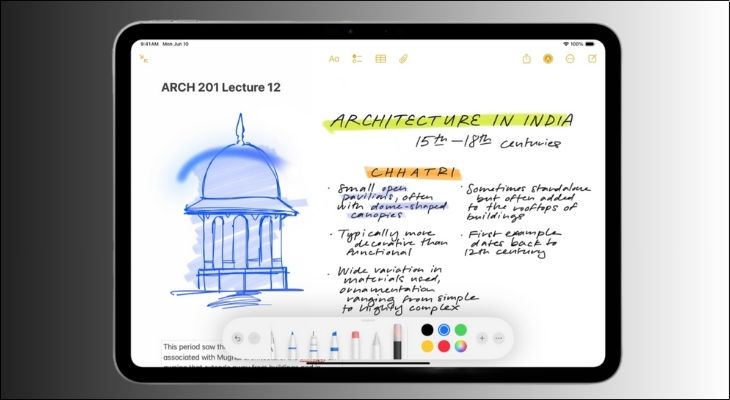 9:41 AM Mon Jun 10
100%
Aa
ARCH 201 Lecture 12
ARCHITECTURE IN INDIA
15th – 18th centuries
CHHATRI
· Small open
pavilions, often
with dome-shaped
canopies
· Typically more
decorative than
functional
· Wide variation in
materials used,
ornamentation
ranging from simple
to highly complex
· Sometimes standalone
but often added
to the rooftops of
buildings
· First example
dates back to
12th century
This period saw
associated with